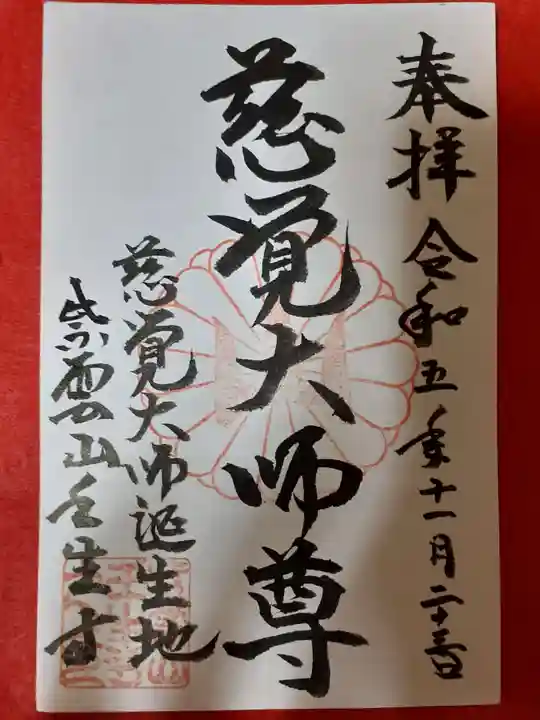 奉拝 令和五年十一月二十三日
慈覚大師尊
慈覚大師誕生地
紫雲山壬生寺